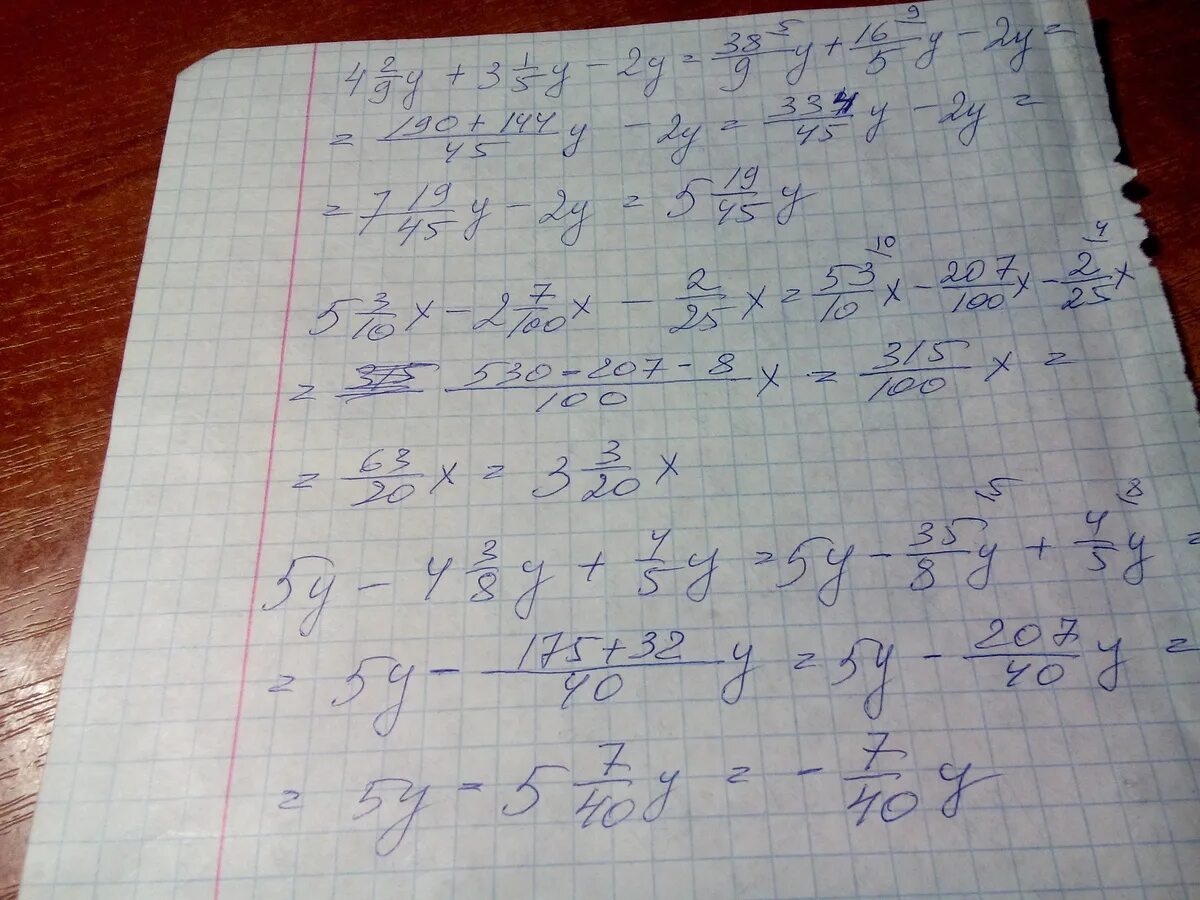 4 2/9 y + 3 1/5 y - 2y = 38/9 ⌊5 y + 16/5 ⌊9 y - 2y =
= (190 + 144)/45 y - 2y = 334/45 y - 2y =
= 7 19/45 y - 2y = 5 19/45 y
5 3/10 x - 2 7/100 x - 2/25 x = 53/10 ⌊10 x - 207/100 x - 2/25 ⌊4 x
= (530 - 207 - 8)/100 x = 315/100 x =
= 63/20 x = 3 3/20 x
5y - 4 3/8 y + 4/5 y = 5y - 35/8 ⌊5 y + 4/5 ⌊8 y =
= 5y - (175 + 32)/40 y = 5y - 207/40 y =
= 5y - 5 7/40 y = - 7/40 y